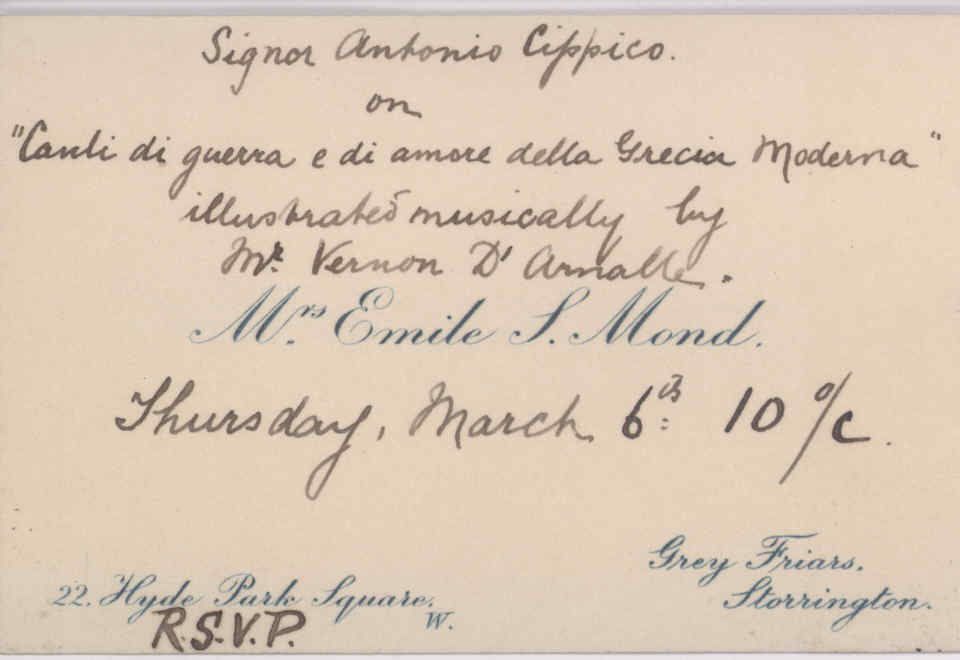 Signor Antonio Cippico.
on
"Canti di guerra e di amore della Grecia Moderna"
illustrated musically by
Mr. Vernon D'Arnalle.
Mrs. Emile S. Mond.
Thursday, March 6th 10 o/c.
Grey Friars.
Storrington.
22. Hyde Park Square.
W.
R.S.V.P.